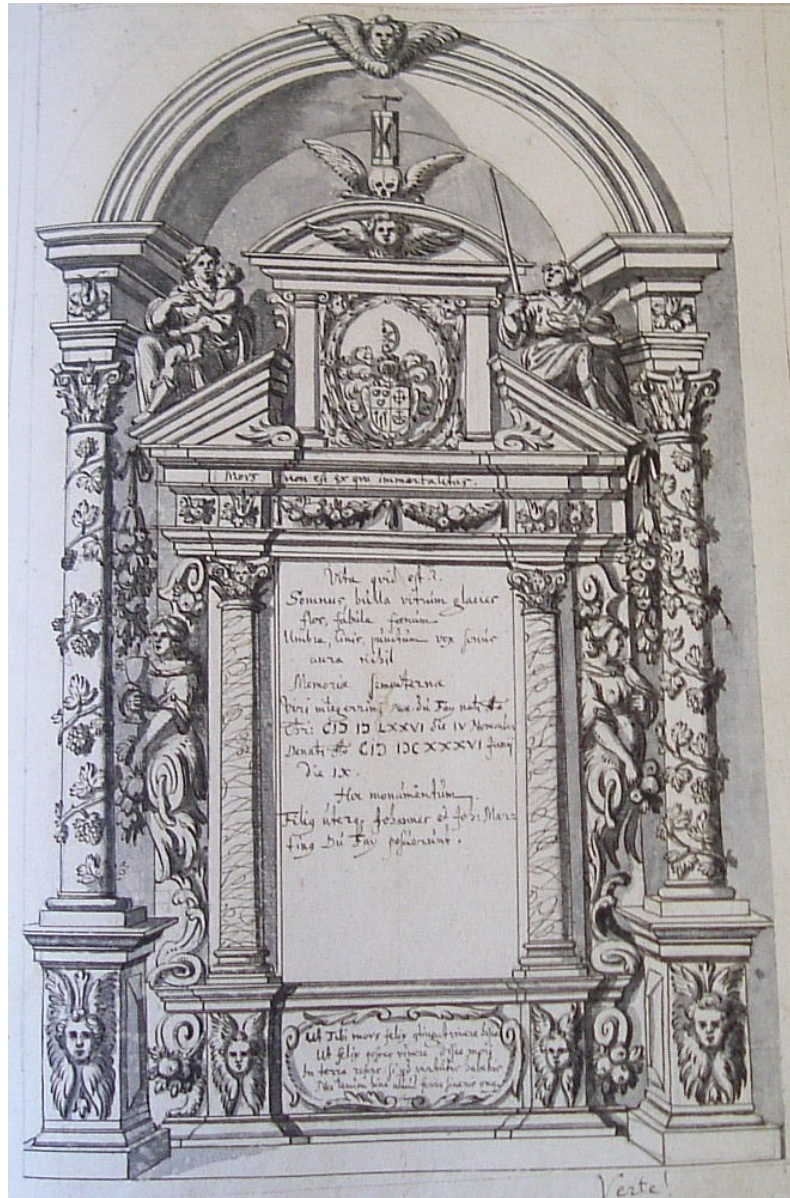 Mors non est ex qua immortalitas.
Vita quid est?
Somnus, bulla vitrum glacies
flos, fabula foenum
Umbra, cinis, punctum vox sonus
aura nihil
Memoriæ sempiternæ
Viri integerrimi du Fay nat
CIↃ IↃ LXXVI die IV Novembr
Denati CIↃ IↃC XXXVI Junij
die IX.
Hoc monumentum
Filij uterq; Johannes et Joh: Mar=
tinq Du Fay posuerunt.
Ut Tibi mors felix vivere
Ut felix vivere disce mori
In terra si
Verte!